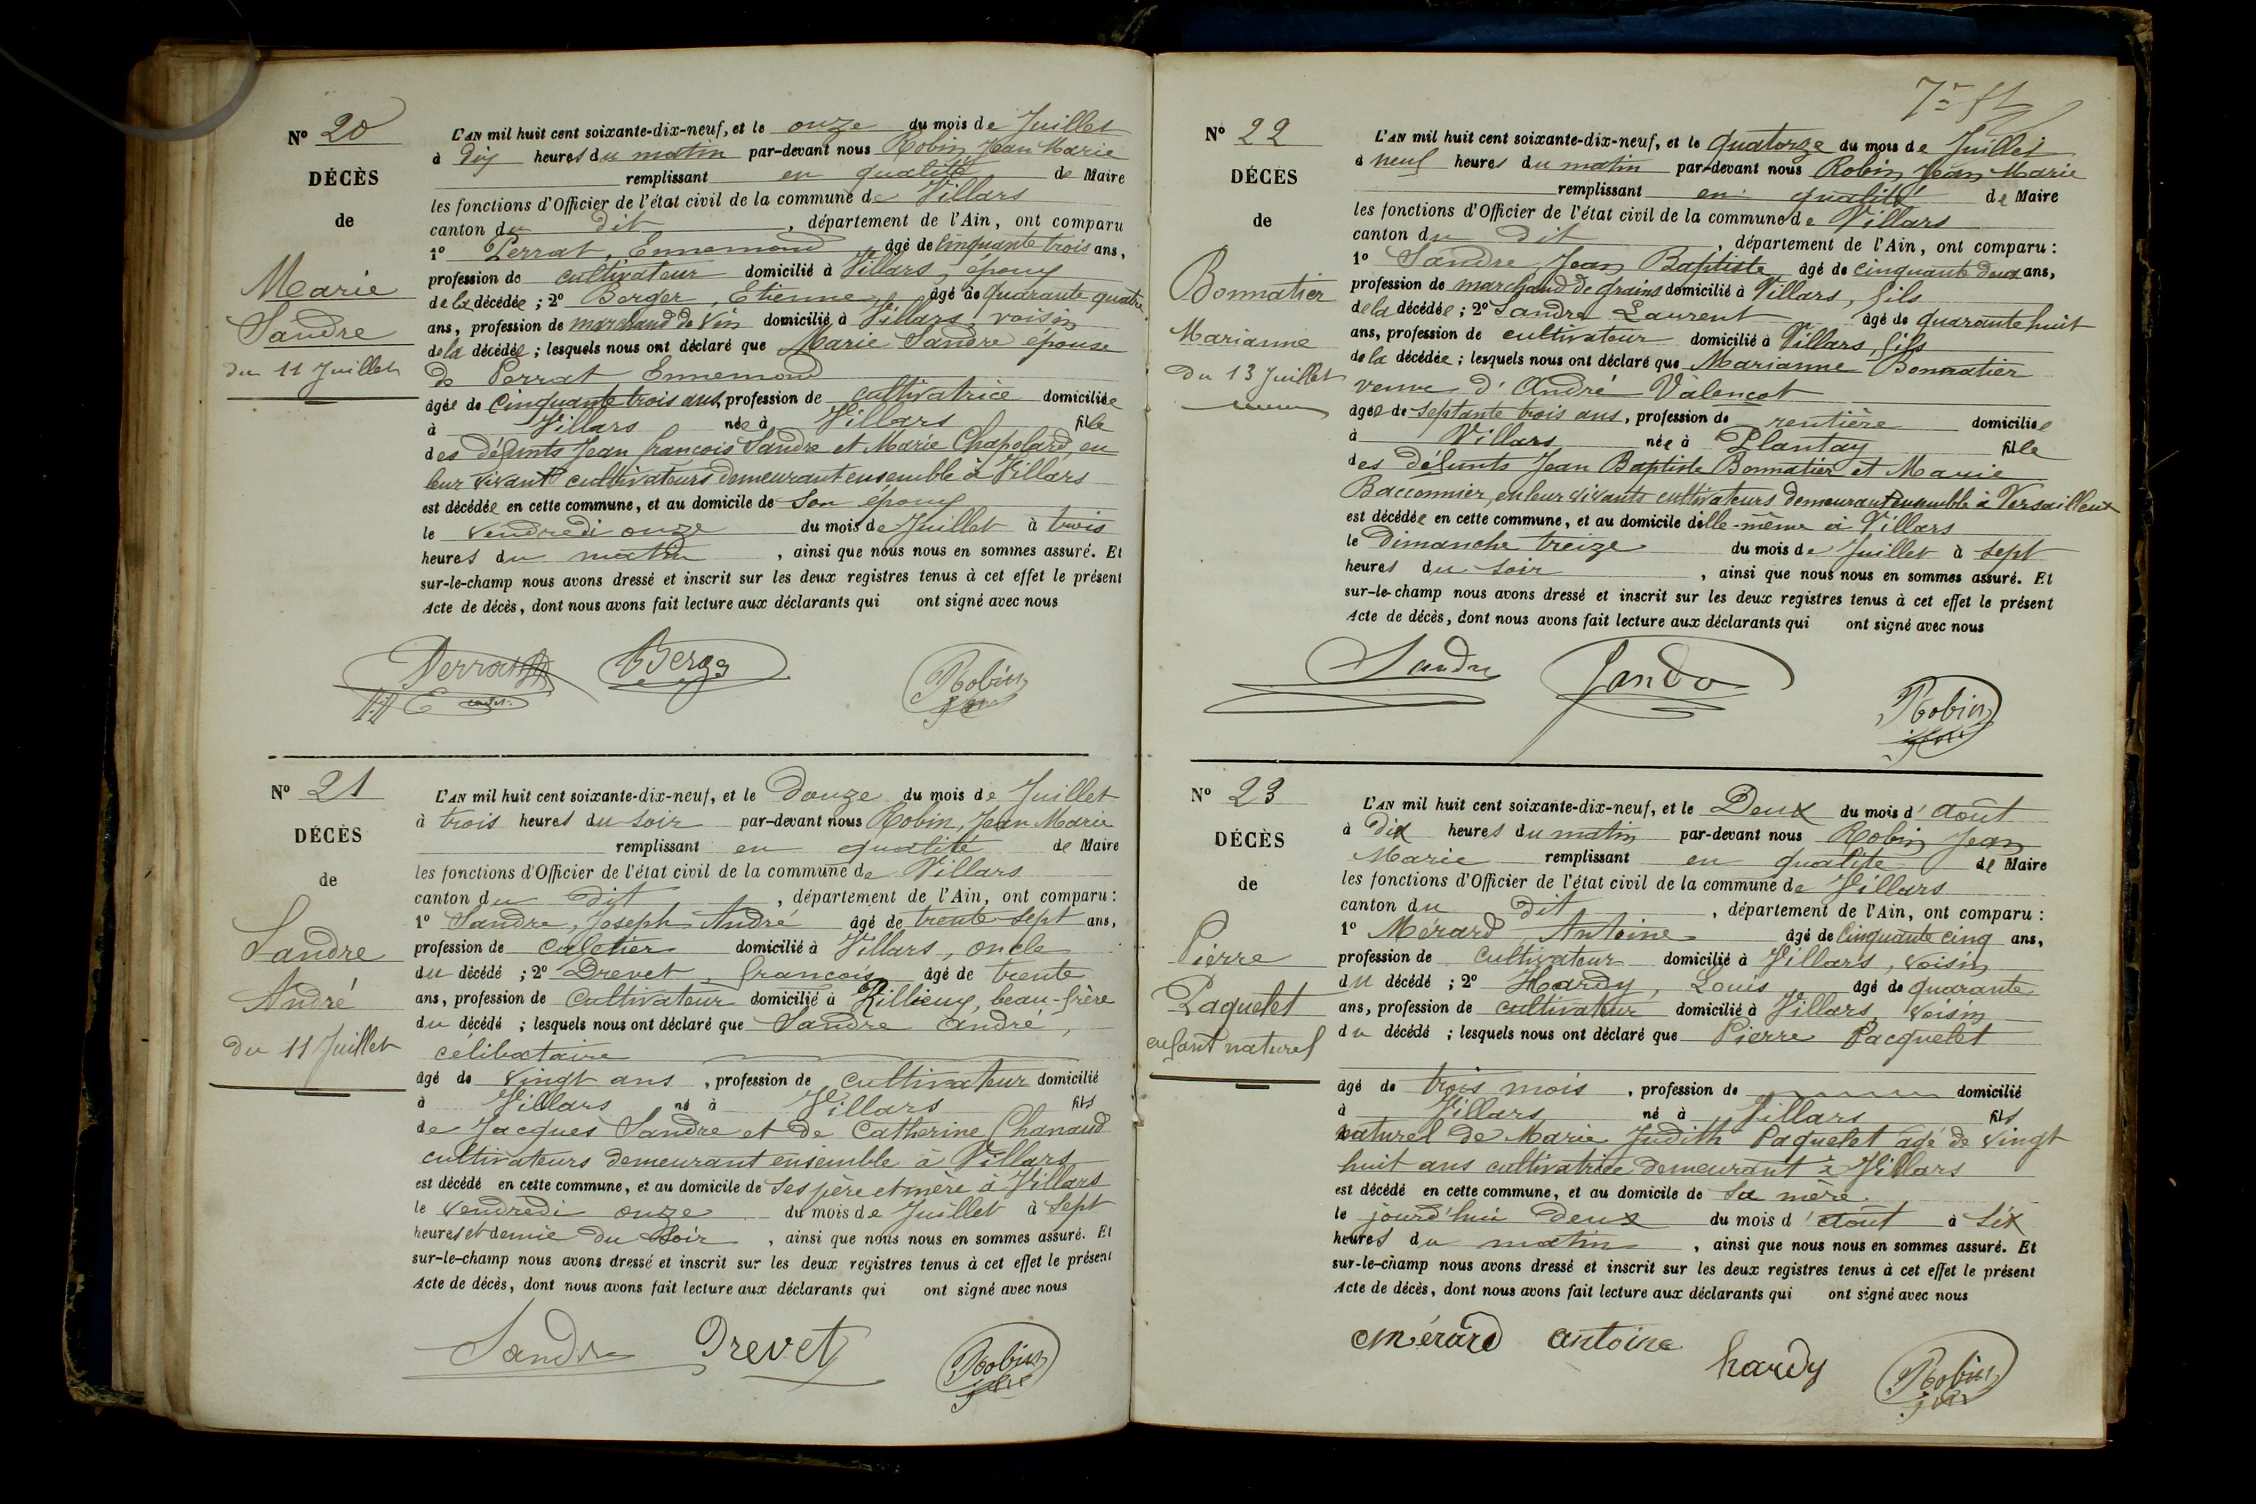 Nº 20
DÉCÈS
de
Marie
Sandre
du 11 Juillet
L'AN mil huit cent soixante-dix-neuf, et le onze du mois de Juillet
à dix heures du matin par-devant nous Robin Jean Marie
remplissant en qualité de Maire
les fonctions d'Officier de l'état civil de la commune de Villars
canton du dit, département de l'Ain, ont comparu
1º Perrat, Ennemond, âgé de cinquante trois ans,
profession de cultivateur domicilié à Villars, époux
de la décédée ; 2º Berger, Etienne, âgé de quarante quatre
ans, profession de marchand de vin domicilié à Villars, voisin
de la décédée ; lesquels nous ont déclaré que Marie Sandre épouse
de Perrat Ennemond
âgée de cinquante trois ans, profession de cultivatrice domiciliée
à Villars née à Villars fille
des défunts Jean françois Sandre et Marie Chapolard, en
leur vivant cultivateurs demeurant ensemble à Villars
est décédée en cette commune, et au domicile de son époux
le vendredi onze du mois de Juillet à trois
heures du matin, ainsi que nous nous en sommes assuré. Et
sur-le-champ nous avons dressé et inscrit sur les deux registres tenus à cet effet le présent
Acte de décès, dont nous avons fait lecture aux déclarants qui ont signé avec nous
Perrat Berger Robin
Nº 21
DÉCÈS
de
Sandre
André
du 11 Juillet
L'AN mil huit cent soixante-dix-neuf, et le Douze du mois de Juillet
à trois heures du soir par-devant nous Robin, Jean Marie
remplissant en qualité de Maire
les fonctions d'Officier de l'état civil de la commune de Villars
canton du dit, département de l'Ain, ont comparu :
1º Sandre, Joseph André âgé de trente-sept ans,
profession de cafetier domicilié à Villars, oncle
du décédé ; 2º Drevet, françois âgé de trente
ans, profession de cultivateur domicilié à Rillieux, beau-frère
du décédé ; lesquels nous ont déclaré que Sandre andré,
célibataire
âgé de vingt ans, profession de cultivateur domicilié
à Villars né à Villars fils
de Jacques Sandre et de Catherine Chanaud
cultivateurs demeurant ensemble à Villars
est décédé en cette commune, et au domicile de ses père et mère à Villars
le vendredi onze du mois de Juillet à sept
heures et demie du soir, ainsi que nous nous en sommes assuré. Et
sur-le-champ nous avons dressé et inscrit sur les deux registres tenus à cet effet le présent
Acte de décès, dont nous avons fait lecture aux déclarants qui ont signé avec nous
Sandre Drevet Robin
Nº 22
DÉCÈS
de
Bonnatier
Marianne
du 13 Juillet
L'AN mil huit cent soixante-dix-neuf, et le quatorze du mois de Juillet
à neuf heures du matin par-devant nous Robin Jean Marie
remplissant en qualité de Maire
les fonctions d'Officier de l'état civil de la commune de Villars
canton du dit, département de l'Ain, ont comparu :
1º Sandre, Jean Baptiste âgé de cinquante deux ans,
profession de marchand de grains domicilié à Villars, fils
de la décédée ; 2º Sandre Laurent âgé de quarante huit
ans, profession de cultivateur domicilié à Villars, fils
de la décédée ; lesquels nous ont déclaré que Marianne Bonnatier
veuve d'André Valençot
âgée de septante trois ans, profession de rentière domiciliée
à Villars née à Plantay fille
des défunts Jean Baptiste Bonnatier et Marie
Bacconnier, en leur vivants cultivateurs demeurant ensemble à Versailleux
est décédée en cette commune, et au domicile d'elle-même à Villars
le Dimanche treize du mois de Juillet à sept
heures du soir, ainsi que nous nous en sommes assuré. Et
sur-le-champ nous avons dressé et inscrit sur les deux registres tenus à cet effet le présent
Acte de décès, dont nous avons fait lecture aux déclarants qui ont signé avec nous
Sandre Sandre Robin
Nº 23
DÉCÈS
de
Pierre
Paquelet
enfant naturel
L'AN mil huit cent soixante-dix-neuf, et le Deux du mois d'août
à dix heures du matin par-devant nous Robin Jean
Marie remplissant en qualité de Maire
les fonctions d'Officier de l'état civil de la commune de Villars
canton du dit, département de l'Ain, ont comparu :
1º Mérard Antoine âgé de cinquante cinq ans,
profession de cultivateur domicilié à Villars, voisin
du décédé ; 2º Hardy, Louis âgé de quarante
ans, profession de cultivateur domicilié à Villars, voisin
du décédé ; lesquels nous ont déclaré que Pierre Pacquelet
âgé de trois mois, profession de domicilié
à Villars né à Villars fils
naturel de Marie Judith Paquelet agé de vingt
huit ans cultivatrice demeurant à Villars
est décédé en cette commune, et au domicile de sa mère
le jourd'hui deux du mois d'août à six
heures du matin, ainsi que nous nous en sommes assuré. Et
sur-le-champ nous avons dressé et inscrit sur les deux registres tenus à cet effet le présent
Acte de décès, dont nous avons fait lecture aux déclarants qui ont signé avec nous
Mérard antoine hardy Robin